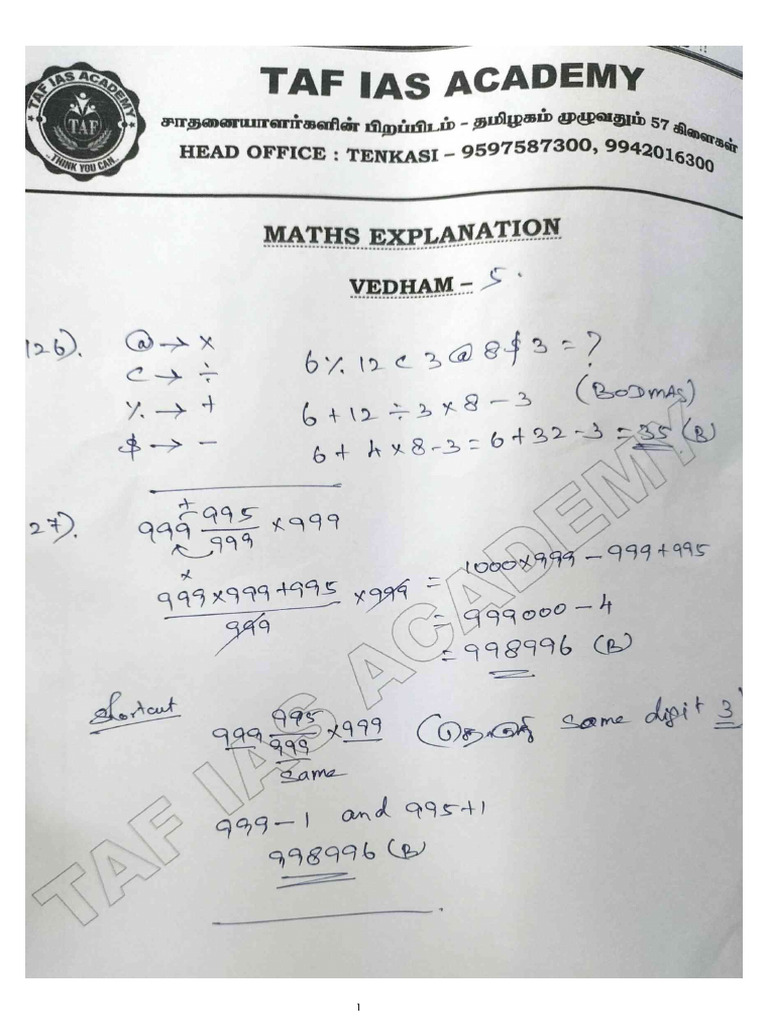 TAF IAS ACADEMY
TAF
..THINK YOU CAN..
TAF IAS ACADEMY
சாதனையாளர்களின் பிறப்பிடம் - தமிழகம் முழுவதும் 57 கிளைகள்
HEAD OFFICE : TENKASI – 9597587300, 9942016300
MATHS EXPLANATION
VEDHAM – 5.
126). @ → × 6 % 12 C 3 @ 8 $ 3 = ?
C → ÷
% → + 6 + 12 ÷ 3 × 8 – 3 (BODMAS)
$ → – 6 + 4 × 8 – 3 = 6 + 32 – 3 = 35 (B)
27). 999 + 995/999 × 999
999 × 999 + 995 / 999 × 999 = 1000 × 999 – 999 + 995
= 999000 – 4
= 998996 (B)
Shortcut
999 995/999 × 999 ( same digit 3
same
999 – 1 and 995 + 1
998996 (B)
TAF IAS ACADEMY
1